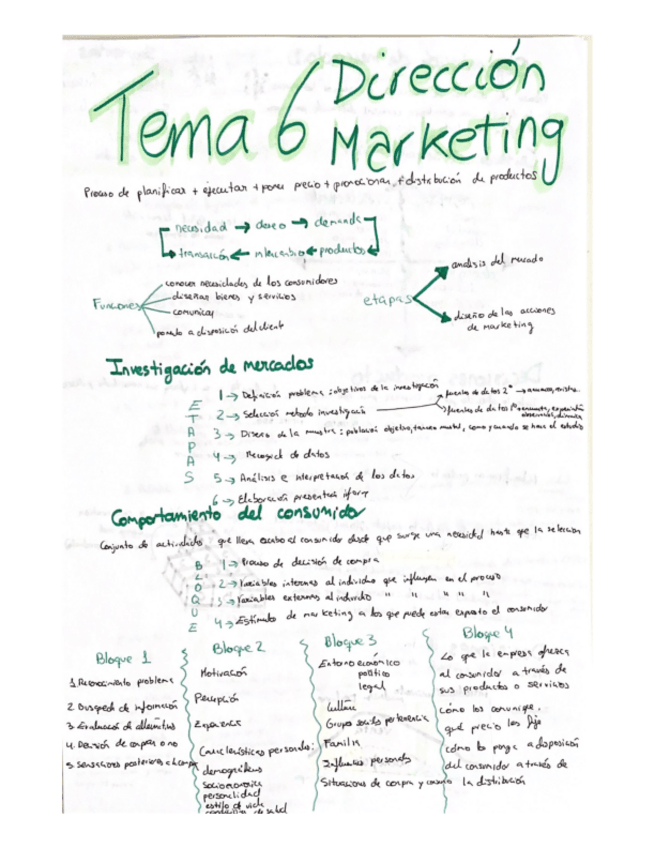 Tema 6 Dirección Marketing
Proceso de planificar + ejecutar + poner precio + promocionar + distribución de productos
necesidad → deseo → demanda
transacción ← intercambio ← productos
Funciones
conocer necesidades de los consumidores
diseñar bienes y servicios
comunicar
ponerlo a disposición del cliente
etapas
analisis del mercado
diseño de las acciones de marketing
Investigación de mercados
ETAPAS
1 → Definición problema: objetivos de la investigación
2 → Selección metodo investigació
fuentes de datos 2º →
fuentes de datos 1º
3 → Diseño de la muestra: población objetivo, tamaño muestral, como y cuando se hace el estudio
4 → Recogida de datos
5 → Análisis e interpretación de los datos
6 → Elaboración presentación informe
Comportamiento del consumidor
Conjunto de actividades que lleva a cabo el consumidor desde que surge una necesidad hasta que la selección
BLOQUE
1 → Proceso de decisión de compra
2 → Variables internas al individuo que influyen en el proceso
3 → Variables externas al individuo " " " " "
4 → Estímulo de marketing a los que puede estar expuesto el consumidor
Bloque 1
1. Reconocimiento problema
2. Busqueda de información
3. Evaluación de alternativas
4. Decisión de compra o no
5. Sensaciones posteriores a la compra
Bloque 2
Motivación
Percepción
Experiencia
Características personales:
demográficas
socioeconomica
personalidad
estilo de vida
Bloque 3
Entorno económico
político
legal
Cultura
Grupo social pertenencia
Familia
Influencias personales
Situaciones de compra y consumo
Bloque 4
Lo que la empresa ofrezca
al consumidor a través de
sus productos o servicios
cómo los comunique,
qué precio les fija
cómo lo ponga a disposición
del consumidor a través de
la distribución